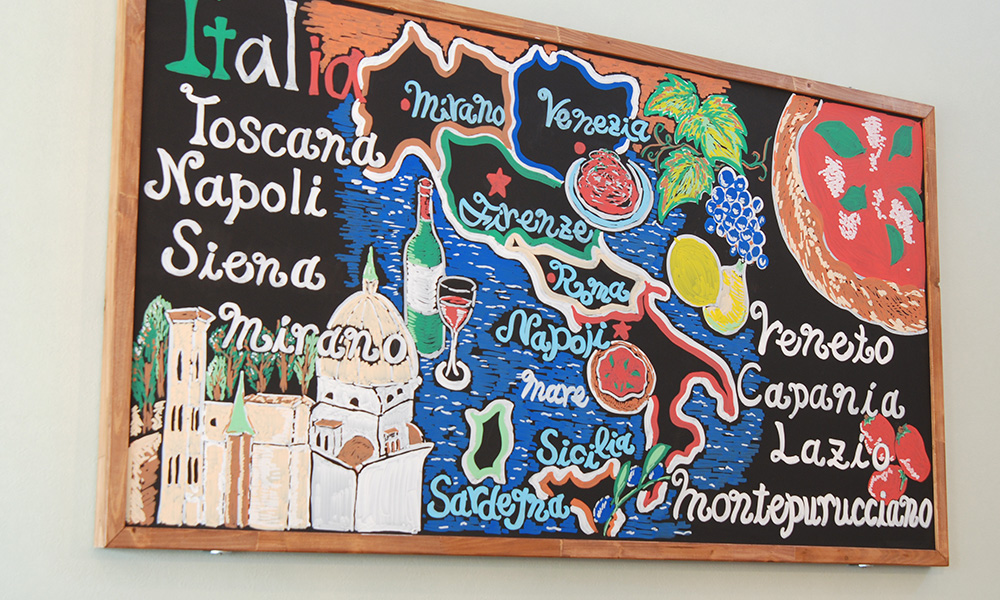 Italia
Toscana
Napoli
Siena
Mirano
Mirano
Venezia
Firenze
Roma
Napoli
mare
Sicilia
Sardegna
Veneto
Capania
Lazio
Montepurucciano